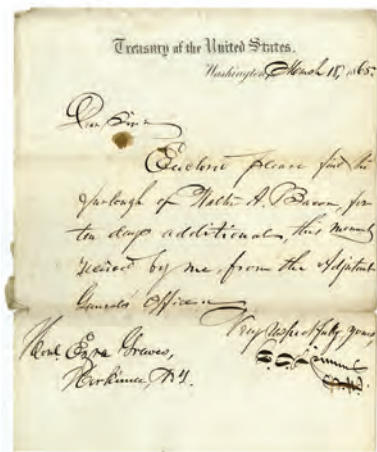 Treasury of the United States.
Washington, March 18, 1865.
Dear Sir
Enclosed please find the
furlough of Walter A. Bacon, for
ten days additional, this moment
received by me, from the Adjutant
General's Office
Very respectfully yours,
Honl Ezra Graves,
Herkimer, N.Y.